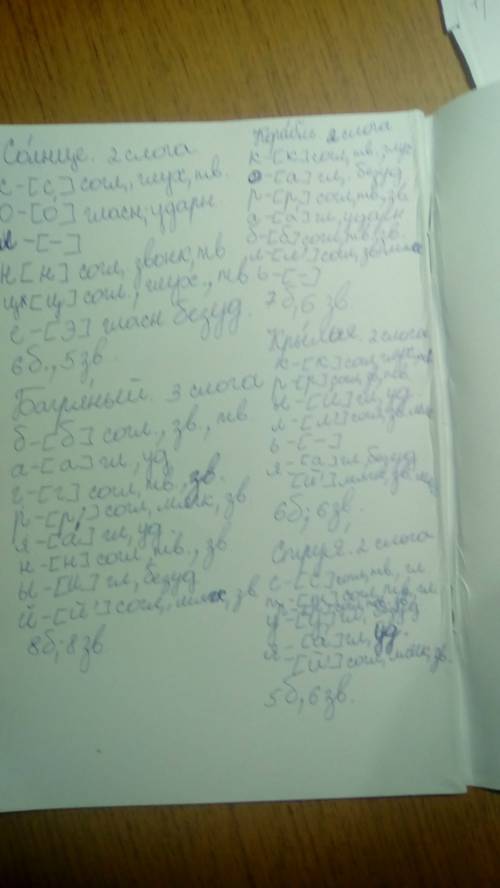 Солнце. 2 слога
с-[с] согл., глух, тв.
о-[о́] гласн, ударн.
л-[-]
н [н] согл, звонк, тв
ц-[ц] согл., глух., тв
е-[э] гласн безуд.
6б., 5 зв.
Багряный. 3 слога
б-[б] согл., зв., тв
а-[а] гл, уд
г-[г] согл, тв, зв.
р-[р,] согл, мягк, зв
я-[а́] гл, уд.
н-[н] согл, тв., зв
ы-[ы] гл, безуд
й-[й'] согл., мягк, зв
8б, 8 зв
Корабль 2 слога
к-[к] согл, тв, глух
о-[а] гл., безуд
р-[р] согл, тв, зв
а-[а́] гл, ударн
б-[б] согл, тв, зв.
л-[л'] согл, зв,
ь-[-]
7б, 6 зв.
Крылья. 2 слога
к-[к] согл, глух, тв
р-[р] согл, зв, тв
ы-[ы] гл, уд
л-[л'] согл, зв,
ь-[-]
я-[а] гл, безуд
[й'] зв,
6б, 6 зв,
Струя. 2 слога
с-[с] согл, тв, гл
т-[т] согл, тв, гл
у-[у] гл, безуд
я-[а] гл, уд.
[й'] согл, мягк, зв.
5б, 6 зв.